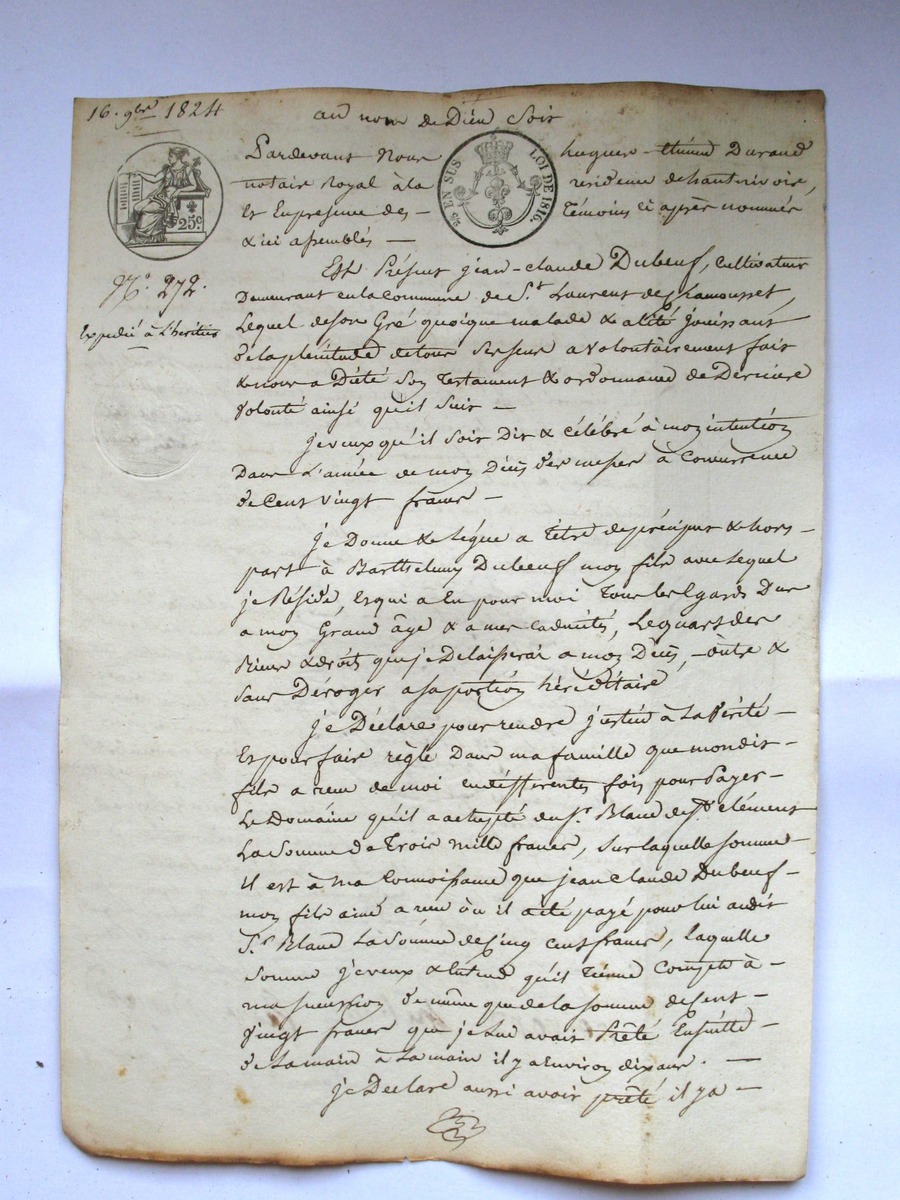 16. 9bre 1824
au nom de Dieu Soit
Pardevant Nous hugues-Etienne Durand
notaire Royal à la residence dehauterivoire,
Et Enpresence des – témoins ci après nommés
& ici assemblés –
25c
25c EN SUS LOI DE 1816.
N° 272.
Expedié à L'heritier
Est Présent jean-claude Dubeuf, Cultivateur
Demeurant enla commune de St Laurent de Chamousset,
Lequel deson Gré quoique malade & alité jouissant
dela plenitude detous Sessens a volontairement fait
& nous a Dicté Son Testament & ordonnance de Derniere
Volonté ainsi qu'il Suit –
jeveux qu'il soit Dit & Célébré à mon intention
Dans L'année de mon Décès des messes à Concurrence
de Cent vingt francs –
je Donne & legue a titre depréciput & hors-
part à Barthelemy Dubeuf mon fils avec Lequel
je Réside, Et qui a Eu pour moi Tous les Egards Dus
a mon Grand âge & a mes Caducités, Lequart des
Biens & droits queje Delaisserai a mon Décès, – outre &
Sans Déroger a saportion héréditaire
je Déclare pour rendre justice à La Vérité –
Et pour faire règle Dans ma famille que mondit –
fils a reçu de moi endifferentes fois pour Payer –
Le Domaine qu'il a acheté du Sr Blanc de St clément
La Somme de Trois mille francs, Sur laquelle somme –
il est à ma Connoissance que jean Claude Dubeuf –
mon fils ainé a reçu ou il a été payé pour lui audit
Sr Blanc La Somme de Cinq cents francs, laquelle
Somme jeveux & entend qu'il Tienne Compte à –
ma succession de même que de la somme de Cent –
Vingt francs que je lui avais Prêté Ensuitte –
de La main à La main il y a Environ dix ans. –
je Declare aussi avoir prêté il y a –